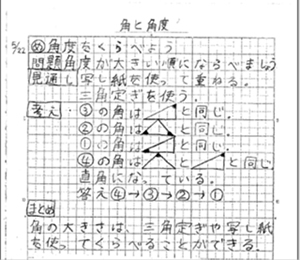 角と角度
5/22 め 角度をくらべよう
問題 角度が大きい順にならべましょう
見通し 写し紙を使って重ねる。
三角定ぎを使う
考え ③の角は と同じ.
②の角は と同じ.
①の角は と同じ.
④の角は と と同じ
直角になっている.
答え④→③→②→①
まとめ
角の大きさは、三角定ぎや写し紙
を使ってくらべることができる.